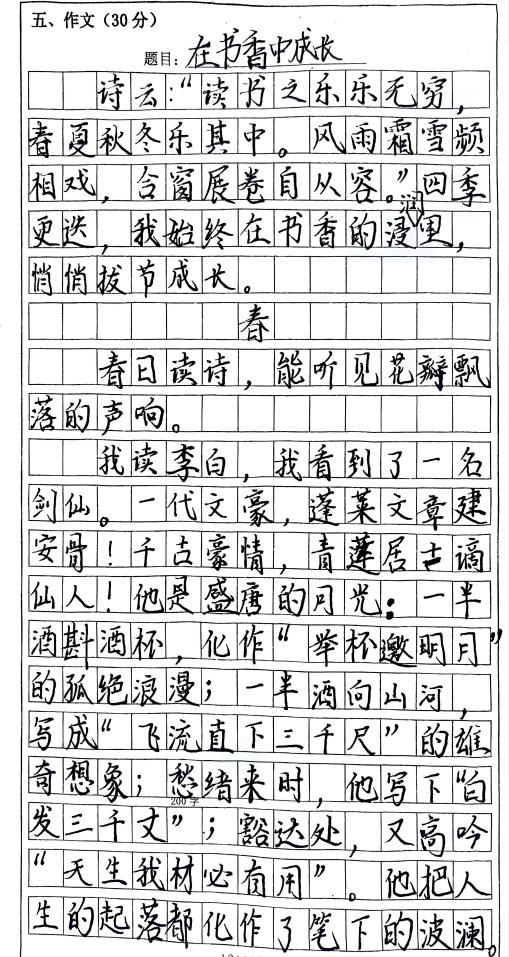 五、作文（30分）
题目：在书香中成长
诗云：“读书之乐乐无穷，
春夏秋冬乐其中。风雨霜雪频
相戏，合窗展卷自从容。”四季
润
更迭，我始终在书香的浸里，
悄悄拔节成长。
春
春日读诗，能听见花瓣飘
落的声响。
我读李白，我看到了一名
剑仙。一代文豪，蓬莱文章建
安骨！千古豪情，青莲居士谪
仙人！他是盛唐的月光：一半
酒斟酒杯，化作“举杯邀明月”
的孤绝浪漫；一半洒向山河，
写成“飞流直下三千尺”的雄
奇想象；愁绪来时，他写下“白
200字
发三千丈”；豁达处，又高吟
“天生我材必有用”。他把人
生的起落都化作了笔下的波澜。